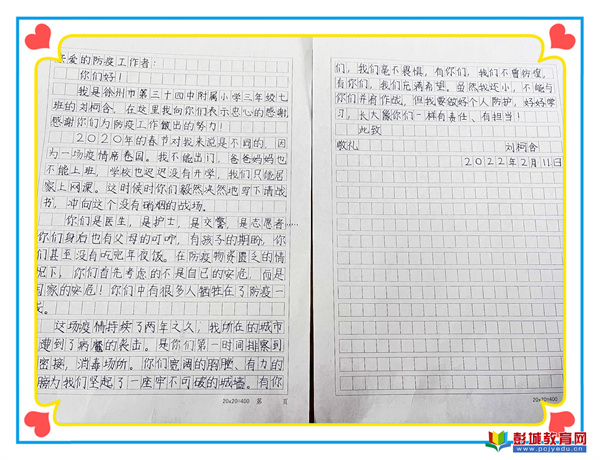 亲爱的防疫工作者：
你们好！
我是徐州市第三十四中附属小学三年级七
班的刘柯含，在这里我向你们表示忠心的感谢
感谢你们为防疫工作做出的努力！
2020年的春节对我来说是不同的，因
为一场疫情席卷国。我不能出门，爸爸妈妈也
不能上班，学校也迟迟没有开学，我们只能居
家上网课。这时候时你们毅然决然地写下请战
书，冲向这个没有硝烟的战场。
你们是医生，是护士，是交警，是志愿者……
你们身后也有父母的叮咛，有孩子的期盼，你
们甚至没有吃完年夜饭。在防疫物资匮乏的情
况下，你们首先考虑的不是自己的安危，而是
国家的安危！你们中有很多人牺牲在了防疫一
线。
这场疫情持续了两年之久，我所在的城市
遭到了病魔的袭击。是你们第一时间排察到
密接，消毒场所。你们宽阔的胸膛、有力的
臂膀为我们竖起了一座牢不可破的城墙。有你
20×20=400 第 页
们，我们毫不畏惧，有你们，我们不曾彷徨，
有你们，我们充满希望。虽然我还小，不能与
你们并肩作战，但我要做好个人防护，好好学
习，长大像你们一样有责任、有担当！
此致
敬礼
刘柯含
2022年2月11日
20×20=400
彭城教育网
www.pcjyedu.cn